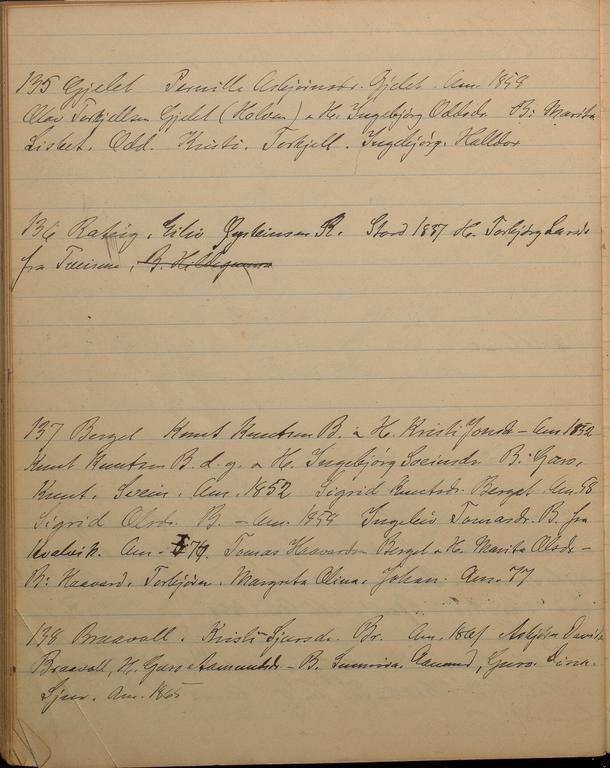 135 Gjelet Pernille Asbjørnsdr. Gjelet. Am. 1858
Olav Torkjellsen Gjelet (Holven) & H. Ingebjørg Oddsdr. B: Marita
Lisbet. Odd. Kristi. Torkjell. Ingebjørg. Halldor
136 Øysteinsen R. Stord 1887 H. Torbjørg Larsdr
fra B. Hildegunna
137 Berget Knut Knutsen B. & H. Kristi Jonsdr – Am 1852
Knut Knutsen B. d. y. & H. Ingebjørg Sveinsdr. B: Guro.
Knut. Svein. Am. 1852 Sigrid Knutsdr. Berget. Am. 58
Sigrid Olsdr. B. – Am. 1858 Tomasdr. B. fra
Kvalvik. Am – 74. Tomas Haavardsen Berget & H. Marita Olsdr –
B: Haavard. Torbjørn. Margreta Olina. Johan. Am. 77
138 Braavoll. Kristi Sjursdr. Br. Am. 1861 Asbjørn Davids
Braavoll, H. Guro Aamundsdr. – B. Sunniva. Aamund, Guro.
Sjur. Am. 1865